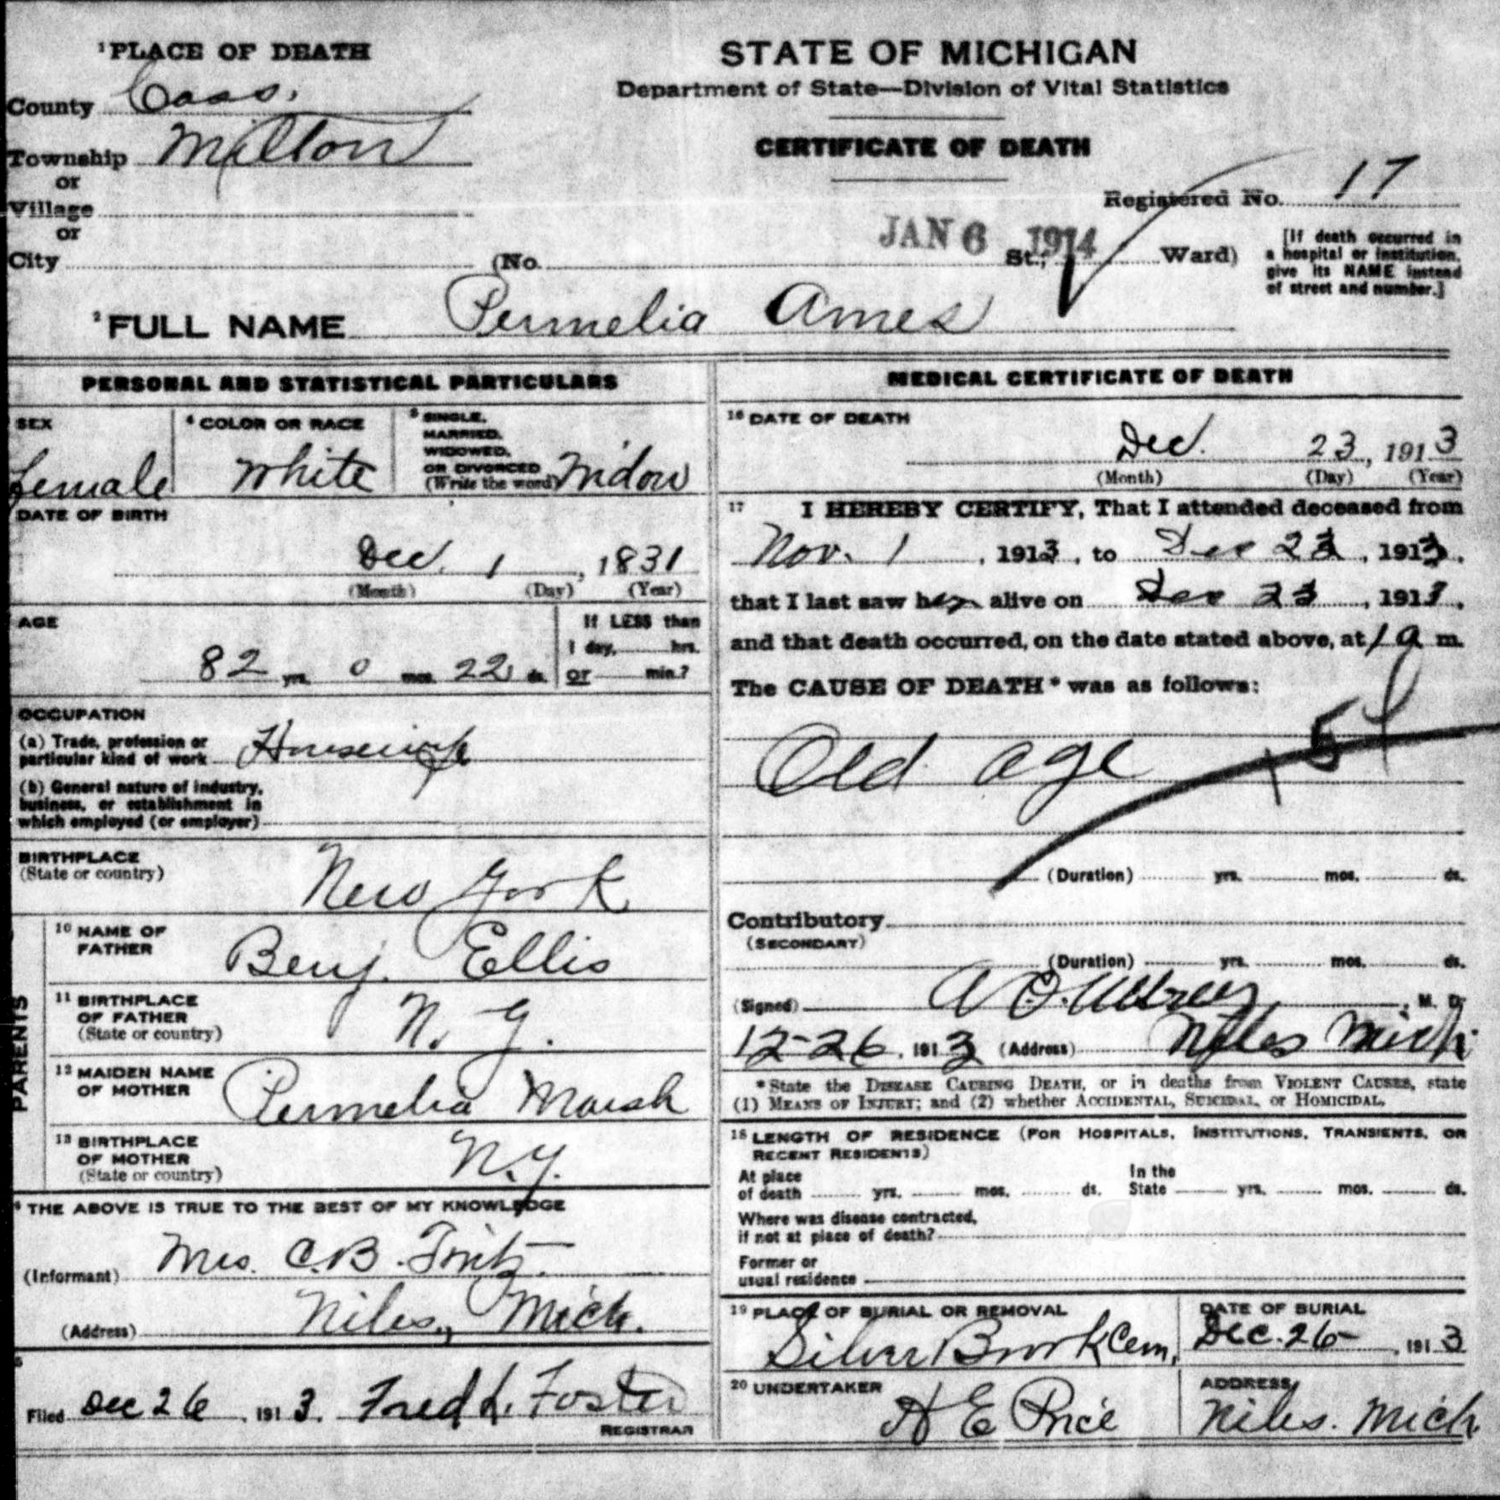 ¹PLACE OF DEATH
County Cass.
Township Milton
or
Village
or
City
STATE OF MICHIGAN
Department of State—Division of Vital Statistics
CERTIFICATE OF DEATH
Registered No. 17
JAN 6 1914
(No. St., Ward)
[If death occurred in
a hospital or institution,
give its NAME instead
of street and number.]
²FULL NAME Permelia Ames
PERSONAL AND STATISTICAL PARTICULARS
SEX
Female
⁴ COLOR OR RACE
White
⁵ SINGLE,
MARRIED,
WIDOWED,
OR DIVORCED
(Write the word) Widow
DATE OF BIRTH
Dec. 1, 1831
(Month) (Day) (Year)
AGE
82 yrs. 0 mos. 22 ds.
If LESS than
1 day, hrs.
or min.?
OCCUPATION
(a) Trade, profession or
particular kind of work Housewife
(b) General nature of industry,
business, or establishment in
which employed (or employer)
BIRTHPLACE
(State or country)
New York
PARENTS
¹⁰ NAME OF
FATHER
Benj. Ellis
¹¹ BIRTHPLACE
OF FATHER
(State or country)
N.Y.
¹² MAIDEN NAME
OF MOTHER
Permelia Marsh
¹³ BIRTHPLACE
OF MOTHER
(State or country)
N.Y.
THE ABOVE IS TRUE TO THE BEST OF MY KNOWLEDGE
(Informant) Mrs. C.B. Fritz
(Address) Niles, Mich.
Filed Dec 26, 1913. Fred L. Foster
REGISTRAR
MEDICAL CERTIFICATE OF DEATH
¹⁶ DATE OF DEATH
Dec. 23, 1913
(Month) (Day) (Year)
¹⁷ I HEREBY CERTIFY, That I attended deceased from
Nov. 1, 1913, to Dec 23, 1913,
that I last saw her alive on Dec 23, 1913,
and that death occurred, on the date stated above, at 1 a m.
The CAUSE OF DEATH* was as follows:
Old age
154
(Duration) yrs. mos. ds.
Contributory
(SECONDARY)
(Duration) yrs. mos. ds.
(Signed) , M. D.
12-26, 1913 (Address) Niles Mich
*State the DISEASE CAUSING DEATH, or in deaths from VIOLENT CAUSES, state
(1) MEANS OF INJURY; and (2) whether ACCIDENTAL, SUICIDAL, or HOMICIDAL.
¹⁸ LENGTH OF RESIDENCE (FOR HOSPITALS, INSTITUTIONS, TRANSIENTS, OR
RECENT RESIDENTS)
At place
of death yrs. mos. ds.
In the
State yrs. mos. ds.
Where was disease contracted,
if not at place of death?
Former or
usual residence
¹⁹ PLACE OF BURIAL OR REMOVAL
Silver Brook Cem,
DATE OF BURIAL
Dec. 26, 1913
²⁰ UNDERTAKER
H E Price
ADDRESS
Niles. Mich